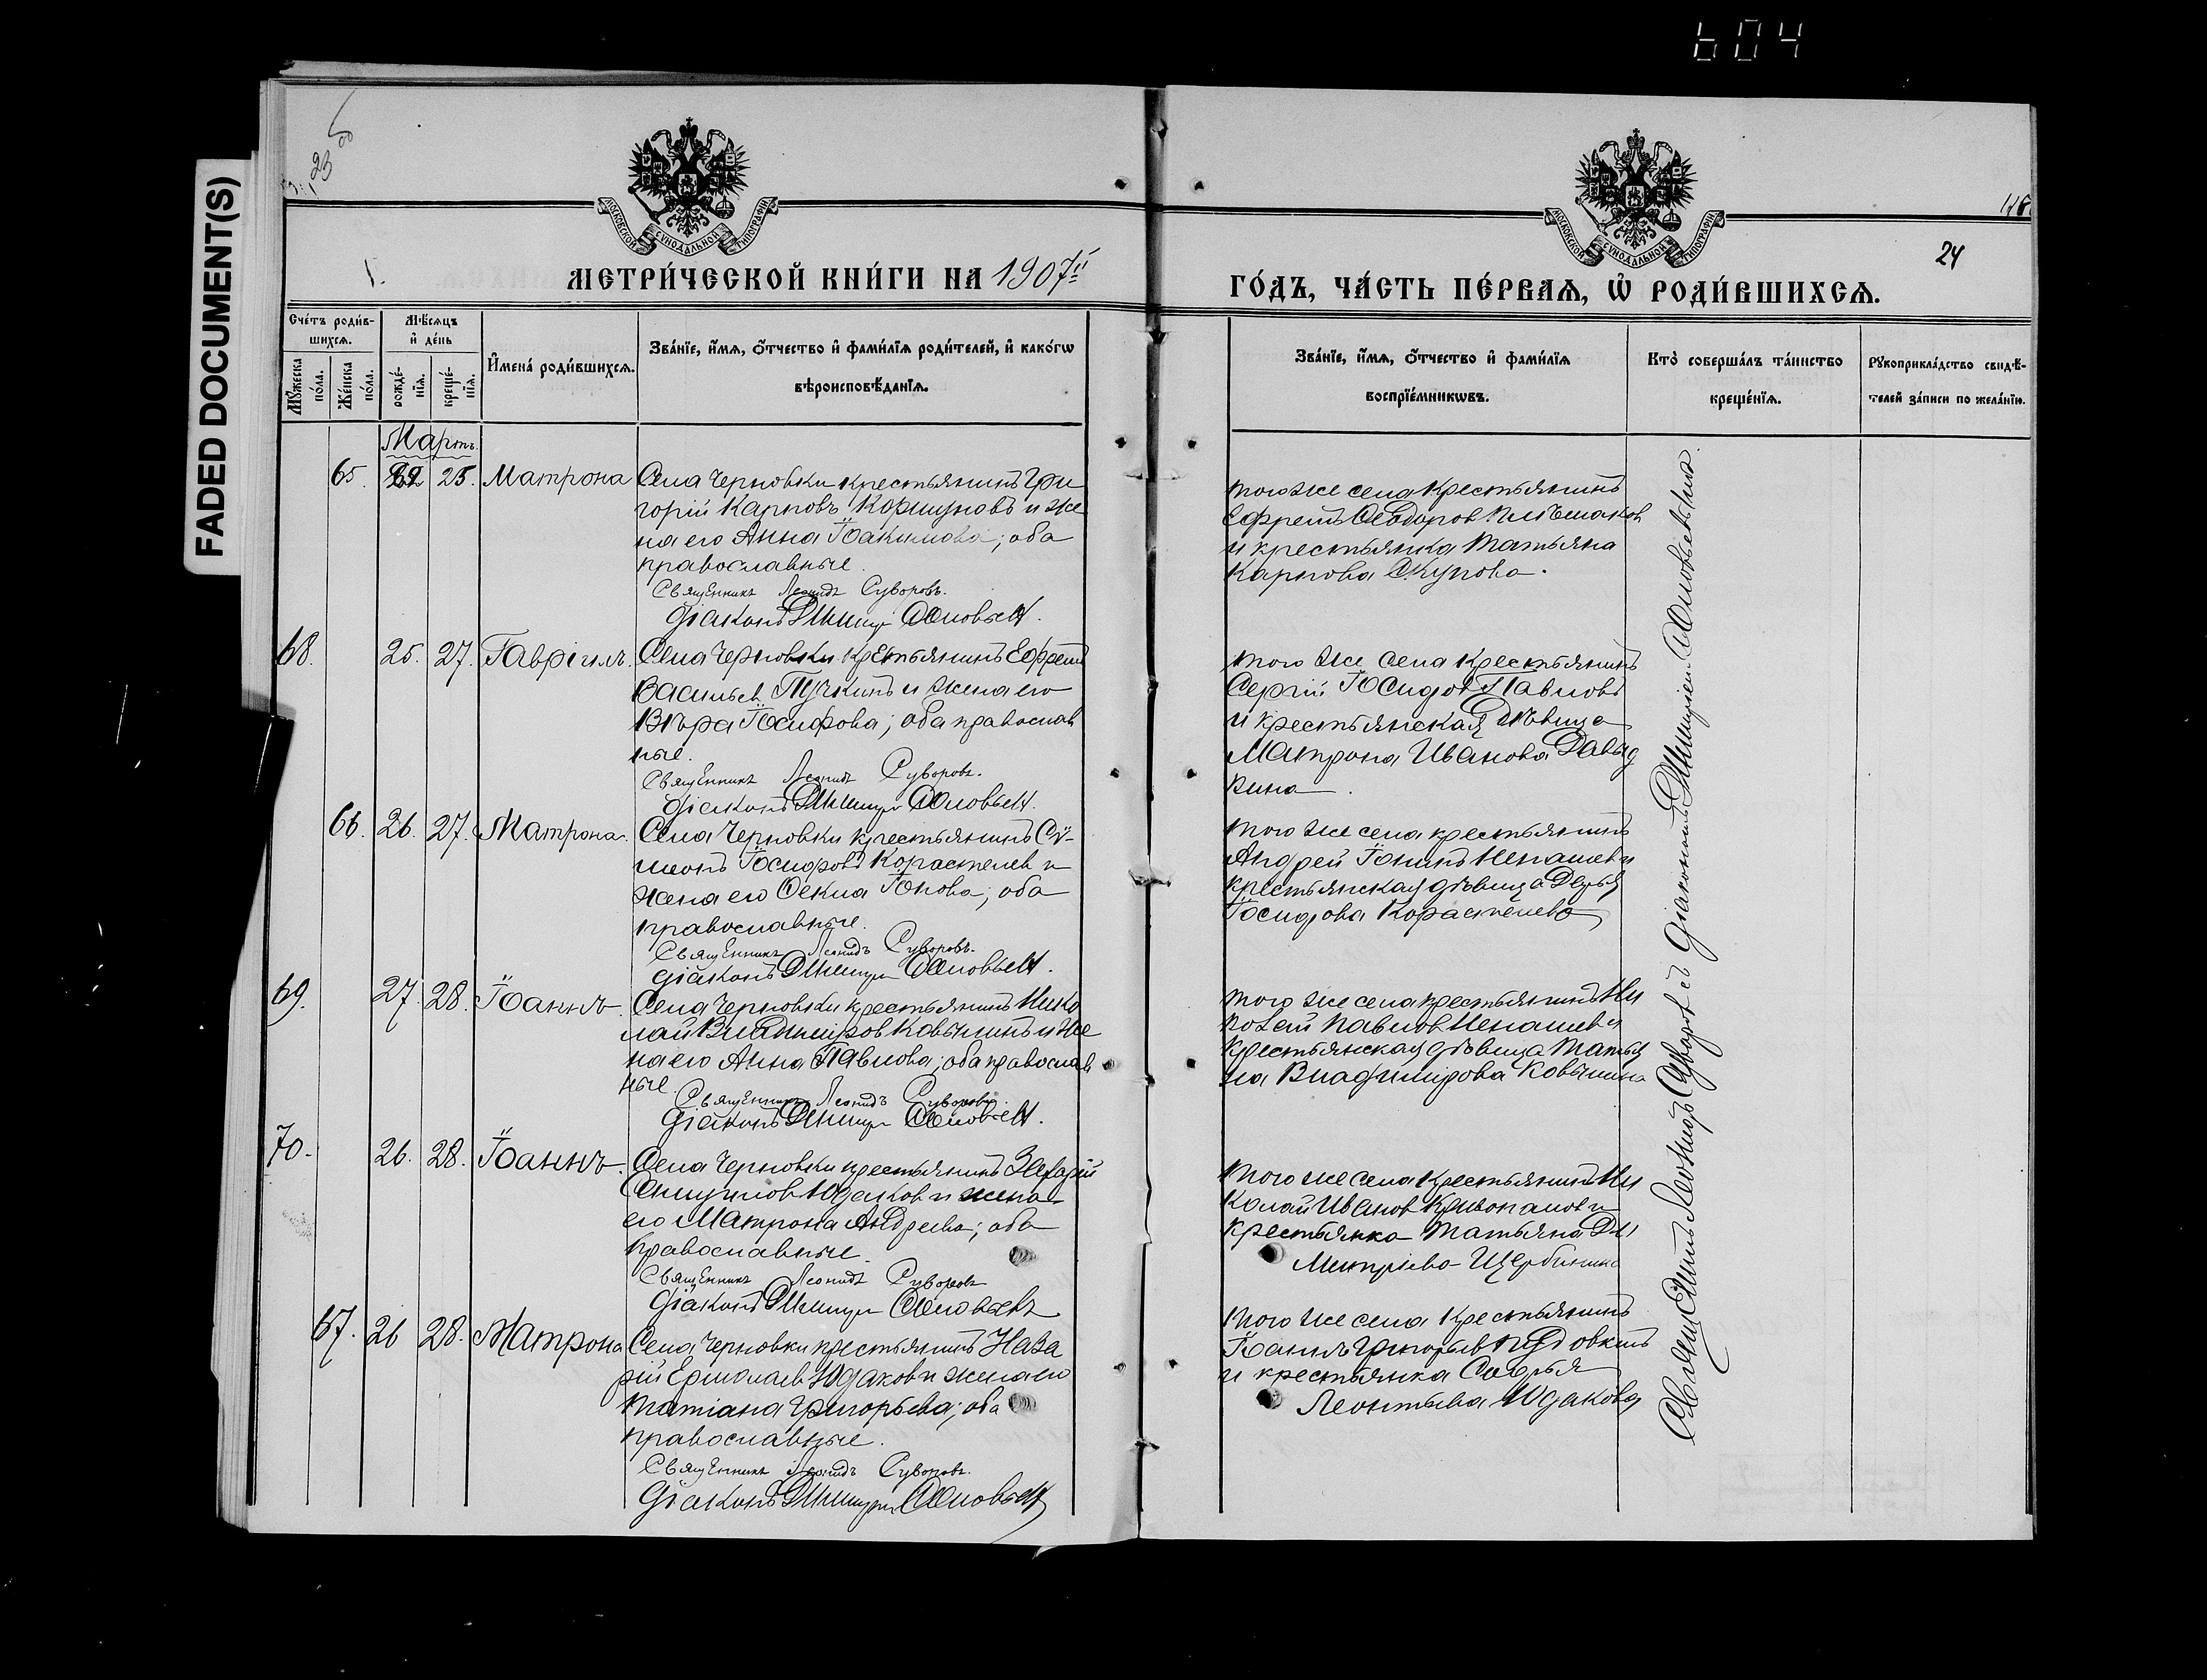 604
FADED DOCUMENT(S)
23
МОСКОВСКОЙ СѴНОДАЛЬНОЙ ТИПОГРАФІИ
МОСКОВСКОЙ СѴНОДАЛЬНОЙ ТИПОГРАФІИ
24
I.
МЕТРИ́ЧЕСКОЙ КНИ́ГИ НА 1907й
ГО́ДЪ, ЧА́СТЬ ПЕ́РВАЯ, Ѡ҆ РОДИ́ВШИХСЯ.
Сче́тъ роди́в-
шихся.
Му́жеска по́ла.
Же́нска по́ла.
Мѣ́сяцъ и҆ де́нь
рожде́-
нїя.
креще́-
нїя.
И҆мена̀ роди́вшихся.
Зва́нїе, и҆́мя, ѻ҆́тчество и҆ фами́лїя роди́телей, и҆ како́гѡ
вѣроисповѣ́данїя.
Зва́нїе, и҆́мя, ѻ҆́тчество и҆ фами́лїя
воспрїе́мникѡвъ.
Кто̀ соверша́лъ та́инство
креще́нїя.
Рꙋкоприкла́дство свидѣ́-
телей за́писи по жела́нїю.
Мартъ.
65. 22 25. Матрона Села Черновки крестьянинъ Гри
горій Карповъ Коршуновъ и же
на его Анна Іоакимова; оба
православные.
Священникъ Леонидъ Суворовъ.
Діаконъ Димитрій Соловьевъ.
того же села крестьянинъ
Ефремъ Ѳеодоров
и крестьянка Татьяна
Карпова
68. 25. 27. Гавріилъ. Села Черновки крестьянинъ Ефремъ
Васильев Пучкинъ и жена его
Вѣра Іосифова; оба православ
ные.
Священникъ Леонидъ Суворовъ.
Діаконъ Димитрій Соловьевъ.
того же села крестьянинъ
Сергій Іосифов Павловъ
и крестьянская дѣвица
Матрона Иванова Давыд
кина.
66. 26. 27. Матрона. Села Черновки крестьянинъ Сѵ-
меонъ Іосифовъ Корастелев и
жена его Ѳекла Іонова; оба
православные.
Священникъ Леонидъ Суворовъ.
Діаконъ Димитрій Соловьевъ.
того же села крестьянинъ
Андрей Іонинъ Ненашев и
крестьянская дѣвица Дарья
Іосифова Корастелева
69. 27. 28. Іоаннъ. Села Черновки крестьянинъ Нико
лай Владиміров Ковынинъ и же
на его Анна Павлова; оба православ
ные.
Священникъ Леонидъ Суворовъ.
Діаконъ Димитрій Соловьевъ.
того же села крестьянинъ Ни
колай Павлов Ненашев и
крестьянская дѣвица Татья
на Владимірова Ковынина
70. 26. 28. Іоаннъ. Села Черновки крестьянинъ
Юдаков и жена
его Матрона Андреева; оба
православные.
Священникъ Леонидъ Суворовъ
Діаконъ Димитрій Соловьевъ
того же села крестьянинъ Ни
колай Иванов и
крестьянка Татьяна Ди
митріева Щербинина
67. 26 28. Матрона Села Черновки крестьянинъ Наза
рій Ермолаев Юдаков и жена его
Татіана Григорьева; оба
православные.
Священникъ Леонидъ Суворовъ.
Діаконъ Димитрій Соловьевъ
того же села крестьянинъ
Іоаннъ Григорьев
и крестьянка Софья
Леонтьева Юдакова
Священникъ Леонидъ Суворов съ діакономъ Димитріем Соловьевымъ.